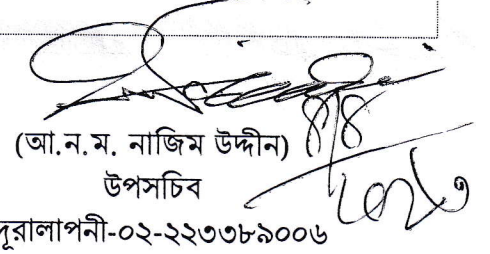 (আ.ন.ম. নাজিম উদ্দীন)
উপসচিব
দূরালাপনী-০২-২২৩৩৮৯০০৬